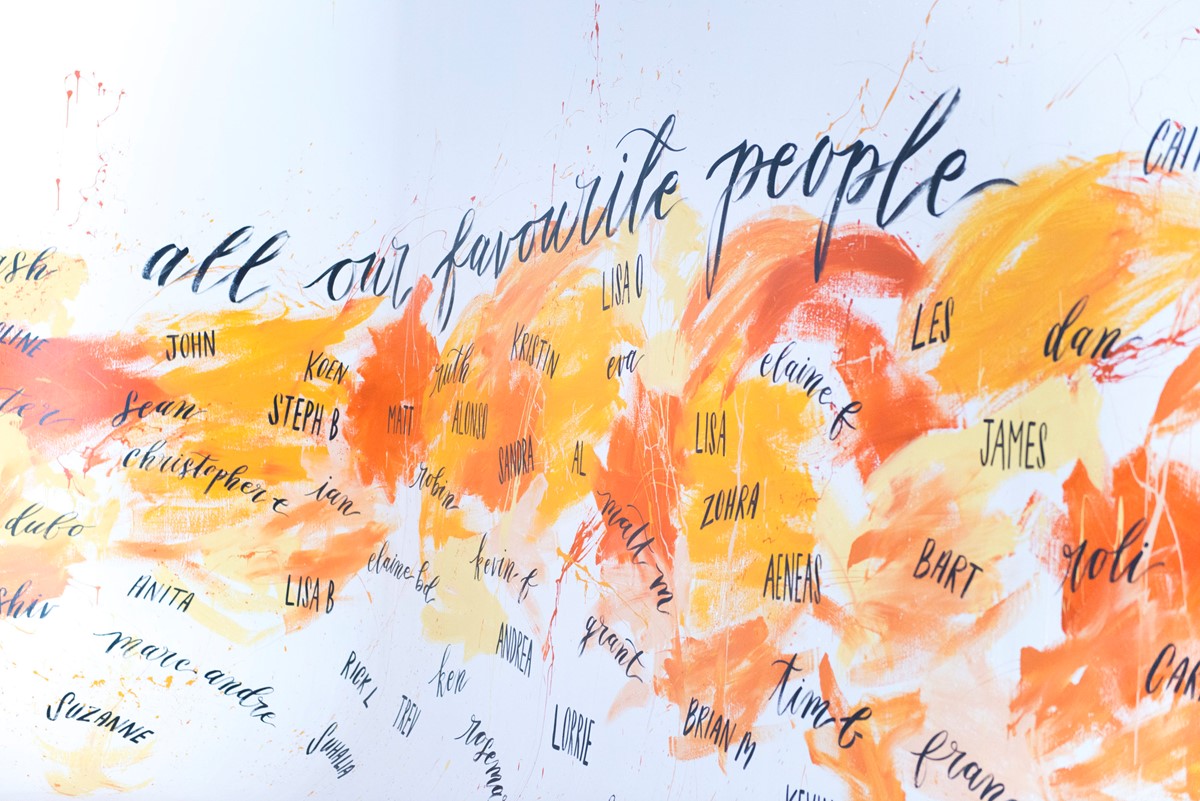 all our favourite people
LISA O
LES
dan
JOHN
KOEN
ruth
KRISTIN
eva
elaine f
sean
STEPH B
MATT
ALONSO
LISA
JAMES
christopher e
ian
robin
SANDRA
AL
ZOHRA
matt m
dubo
elaine bd
kevin f
AENEAS
BART
roli
shiv
ANITA
LISA B
marc andre
ANDREA
grant
SUZANNE
RICK L
ken
TREV
SUHALIA
LORRIE
BRIAN M
tim b